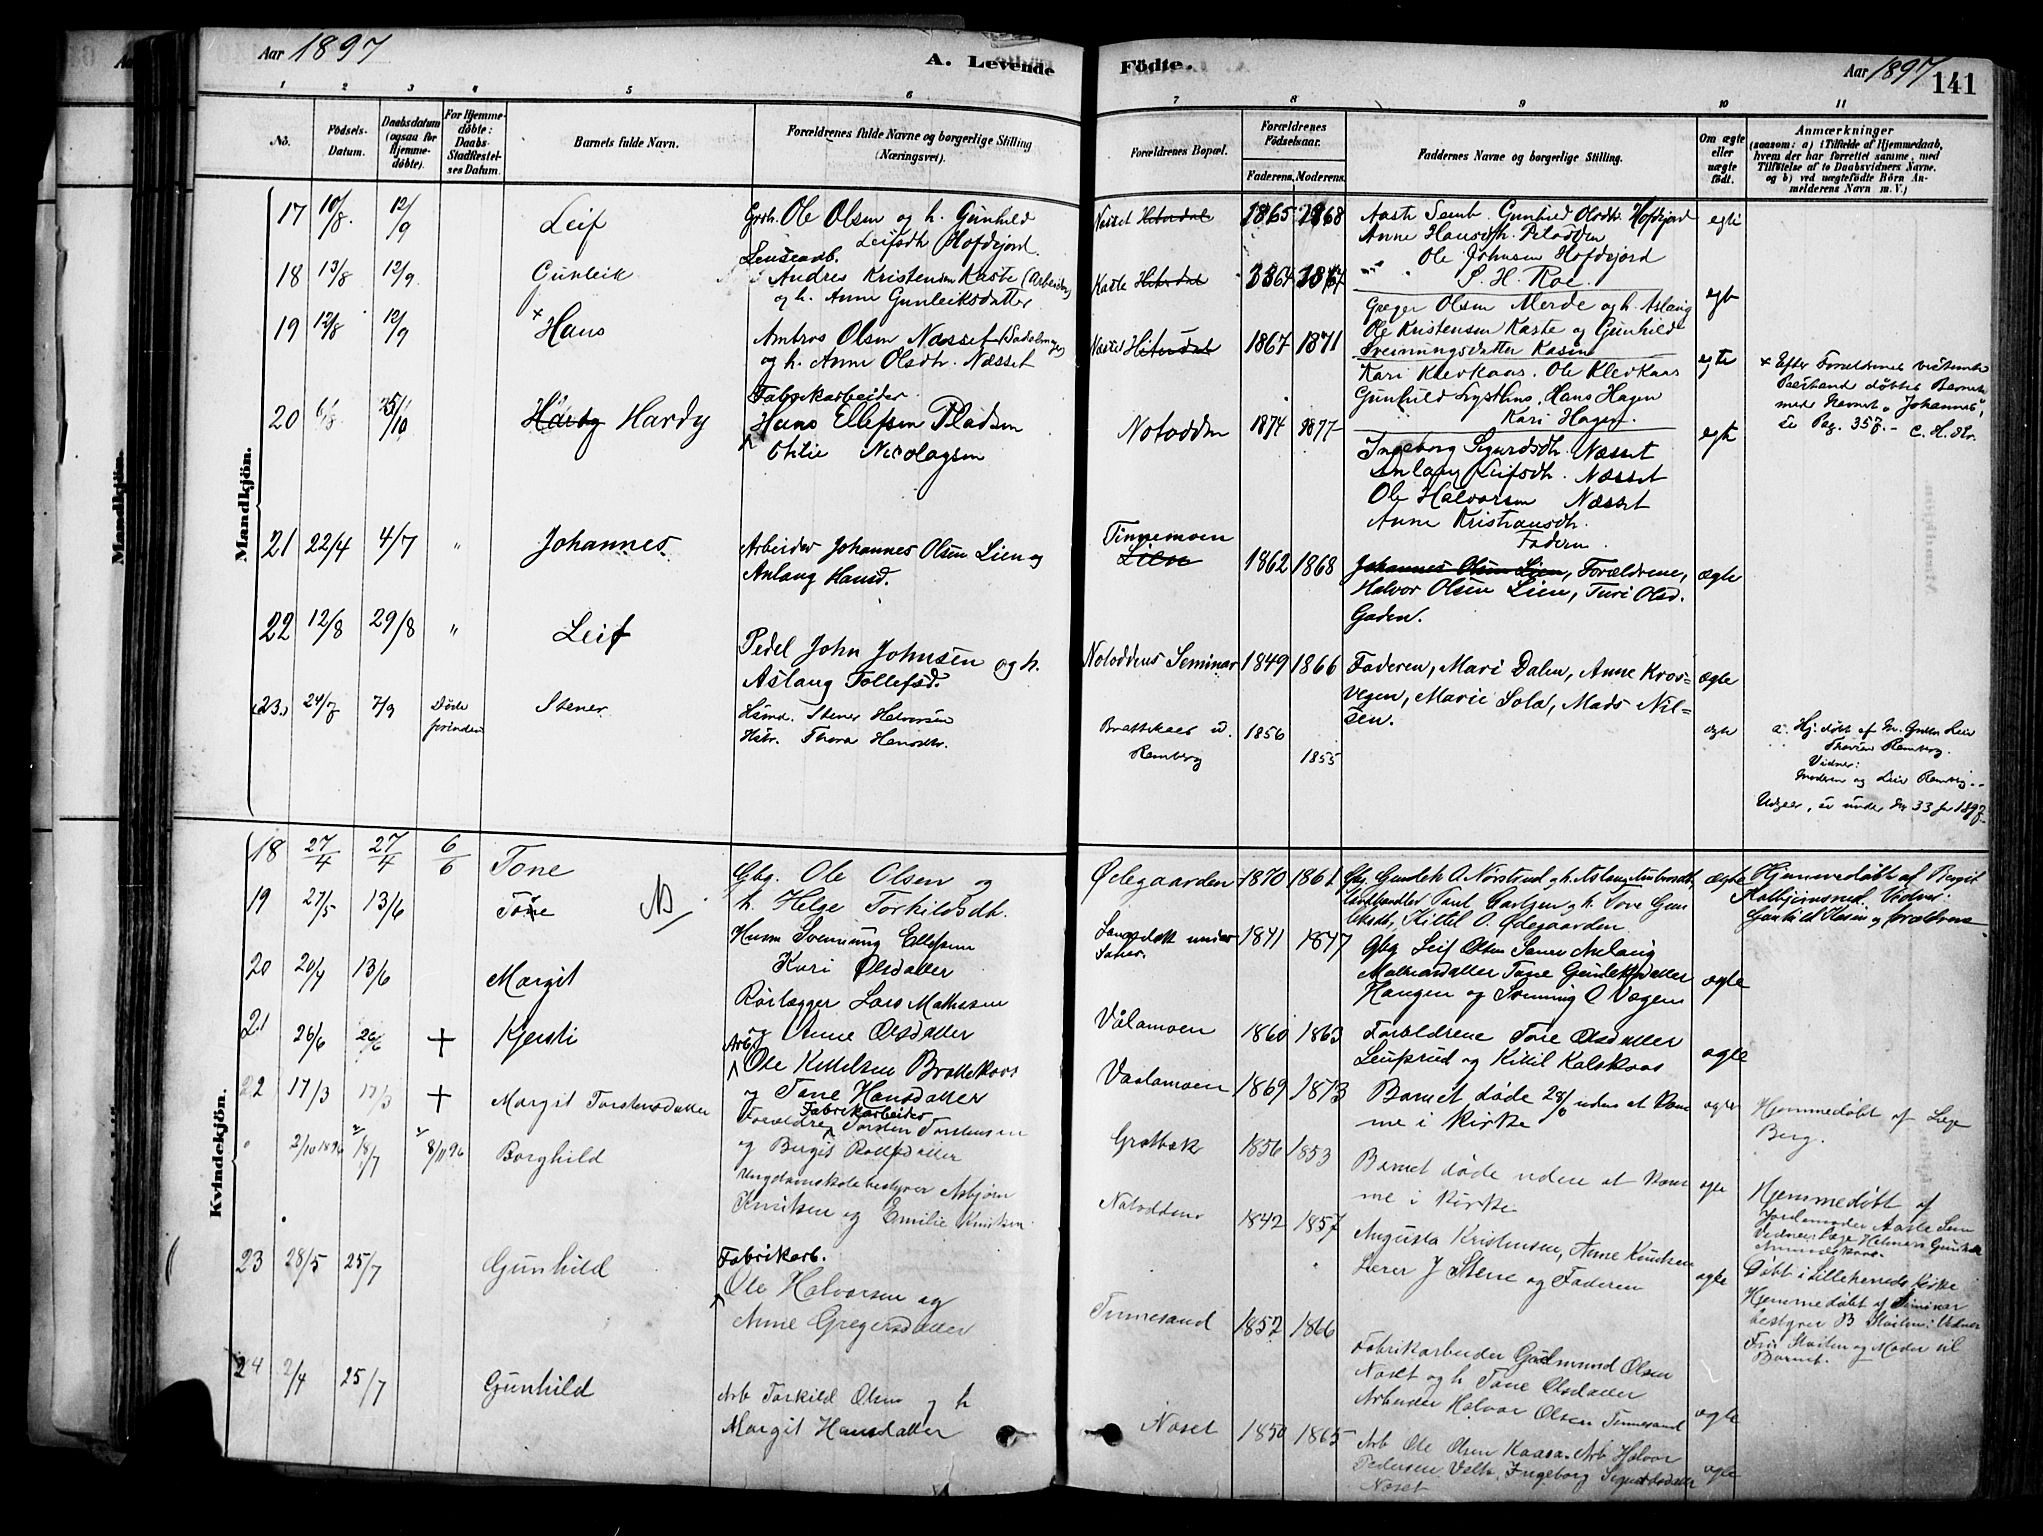 Aar 1897
A. Levende
Födte.
Aar 1897
141
1 2 3 4 5 6 7 8 9 10 11
No.
Födsels-
Datum.
Daabsdatum
(ogsaa for
Hjemme-
döbte).
For Hjemme-
döbte:
Daabs-
Stadfæstel-
ses Datum.
Barnets fulde Navn.
Forældrenes fulde Navne og borgerlige Stilling
(Næringsvei).
Forældrenes Bopæl.
Forældrenes
Födselsaar.
Faderens. Moderens.
Faddernes Navne og borgerlige Stilling.
Om ægte
eller
uægte
født.
Anmærkninger
(saasom: a) i Tilfælde af Hjemmedaab,
hvem der har forrettet samme, med
Tilföielse af to Daabsvidners Navne,
og b) ved uægtefödte Börn An-
melderens Navn m. V.)
Mandkjön.
17 10/8 12/9 Leif
Ole Olsen og h. Gunhild
Leifsdtr Hofdejord.
Næsset Hiterdal 1865 1868
Aaste Semb. Gunhild Olsdtr. Hofdejord
Anne Hansdtr.
Ole Johnsen Hofdejord
egte
18 13/8 12/9 Gunleik
Andres Kristensen Kaste (Arbeider)
og h. Anne Gunleiksdatter
Kaste Hiterdal 1864 1867
S. H. Roe.
Greger Olsen Merde og h. Aslaug
Ole Kristensen Kaste og Gunhild
Sveinungsdatter Kasin
egte
19 12/8 12/9 Hans
Ambros Olsen Næsset
og h. Anne Olsdtr. Næsset
Næsset Hiterdal 1867 1871
Kari Klevkaas. Ole Klevkaas
Gunhild Lysthus, Hans Hagen
Kari Hagen.
egte
+ Efter Forældrenes
døbtes Barnet
med Navnet "Johannes",
se Pag. 357. -
20 6/8 Hardy
Fabrikarbeider
Hans Ellefsen Pladsen
Othilie Nicolaysen
Notodden 1874 1877
Ingeborg Sigurdsdtr. Næsset
Anlaug Leifsdtr. Næsset
Ole Halvorsen Næsset
Anne Kristiansdtr.
Faderen
egte
21 22/4 4/7 " Johannes
Arbeider Johannes Olsen Lien og
Anlaug Hansd.
Tinnemoen
Lien
1862 1868
Johannes Olsen Lien, Forældrene,
Halvor Olsen Lien, Turi Olsd.
Gaden.
ægte
22 12/8 29/8 " Leif
Pedel John Johnsen og h.
Aslaug Tollefsd.
Notoddens Seminar 1849 1866
Faderen, Mari Dalen, Anne Kros-
vegen, Marie Solø, Mads Nil-
sen.
ægte
(23.) 24/7 7/9 Døde
forinden
Stener
Hsmd. Stener Halvorsen
Hstr. Thora Hansdtr.
Brattekaas u.
Ramberg
1856 1855
ægte
a. Hj. døbt af
Ramberg.
Vidner:
Moderen og Leif Ramberg. -
Udgaar, se under No 33 for 1897.
Kvindekjön.
18 27/4 27/4 6/6 Tone
Gbg. Ole Olsen og
h. Helge Torkildsdtr.
Ødegaarden 1870 1861
Gbg. Gunlek O. Nørstrud og h. Aslaug Ambrosdtr.
Landhandler Paul Carlsen og h. Tone Gun-
leksdtr, Kittil O. Ødegaarden
ægte
Hjemmedøbt af Bergit
Kolbjørnsrud. Vidner:
Gunhild Kasin og forældrene
19 27/5 13/6 Tone
Husm Svenning Ellefsen
Kari Olsdatter
1841 1847
Gbg Leif Olsen Sanes Anlaug
Tone Gunleksdatter
Haugen og Svenning O Vegen
ægte
20 20/4 13/6 Margit
Rørlægger Lars Mathisen
og Anne Olsdatter
Vålamoen 1860 1863
Forældrene Tone Olsdatter
Leuprud og Kittil Kalskaas
ægte
21 26/6 26/6 + Kjersti
Arb.
Ole Kittelsen Brattekaas
og Tone Hansdatter
Vaalamoen 1869 1873
Barnet døde 28/6 uden at kom-
me i Kirke
ægte
Hjemmedøbt af Læge
Berg.
22 17/3 17/3 + Margit Torstensdatter
Fabrikarbeider
Forældre Torsten Torstensen
og Bergit Rolfsdatter
Grotbæk 1856 1853
Barnet døde uden at kom-
me i Kirke
ægte
Hjemmedøbt af
Jordemoder Aaste Sem
" 2/10 1896 18/7 8/11 96 Borghild
Ungdomsskolebestyrer Asbjørn
Knutsen og Emilie Knutsen
Notodden 1842 1857
Augusta Kristensen, Anne Knutsen
Lærer J Stene og Faderen
ægte
Døbt i Lilleherreds Kirke
Hjemmedøbt af Seminar
bestyrer B Støilen: Vidner
Fru Støilen og Moder til
Barnet.
23 28/5 25/7 Gunhild
Fabrikarb.
Ole Halvorsen og
Anne Gregersdatter
Tinnesand 1857 1866
Fabrikarbeider Gudmund Olsen
Næset og h Tone Olsdatter
Arbeider Halvor Olsen Tinnesand
ægte
24 2/4 25/7 Gunhild
Arb Torkild Olsen og h
Margit Hansdatter
Næset 1850 1865
Arb Ole Olsen Kaasa. Arb Halvor
Pedersen Ingeborg Sigurdsdatter
Næset
ægte